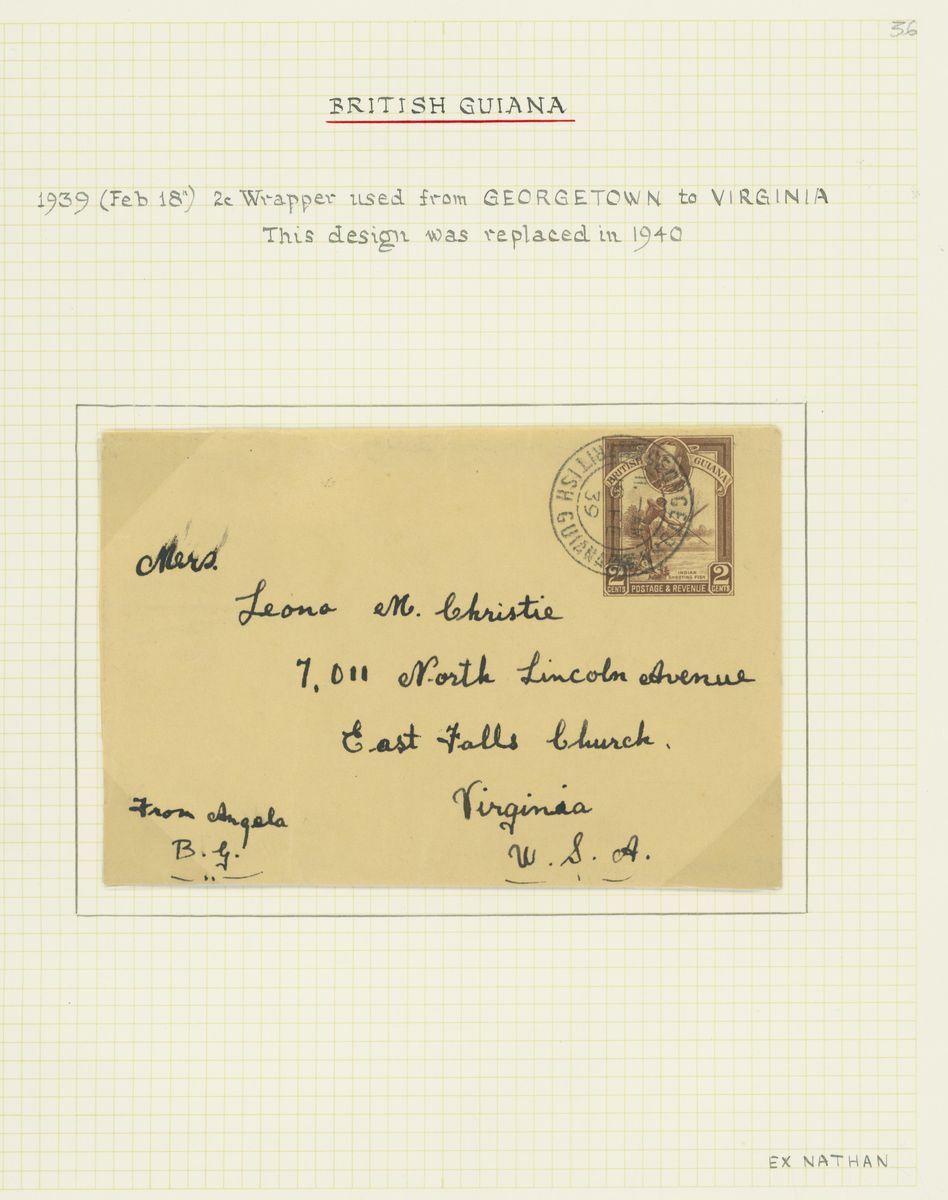 36
BRITISH GUIANA
1939 (Feb 18ᵗʰ) 2c Wrapper used from GEORGETOWN to VIRGINIA
This design was replaced in 1940
BRITISH GUIANA
39
BRITISH GUIANA
INDIAN
SHOOTING FISH
2 CENTS POSTAGE & REVENUE 2 CENTS
Mers.
Leona M. Christie
7,011 North Lincoln Avenue
East Falls Church.
Virginia
U. S. A.
From Angela
B. G.
EX NATHAN